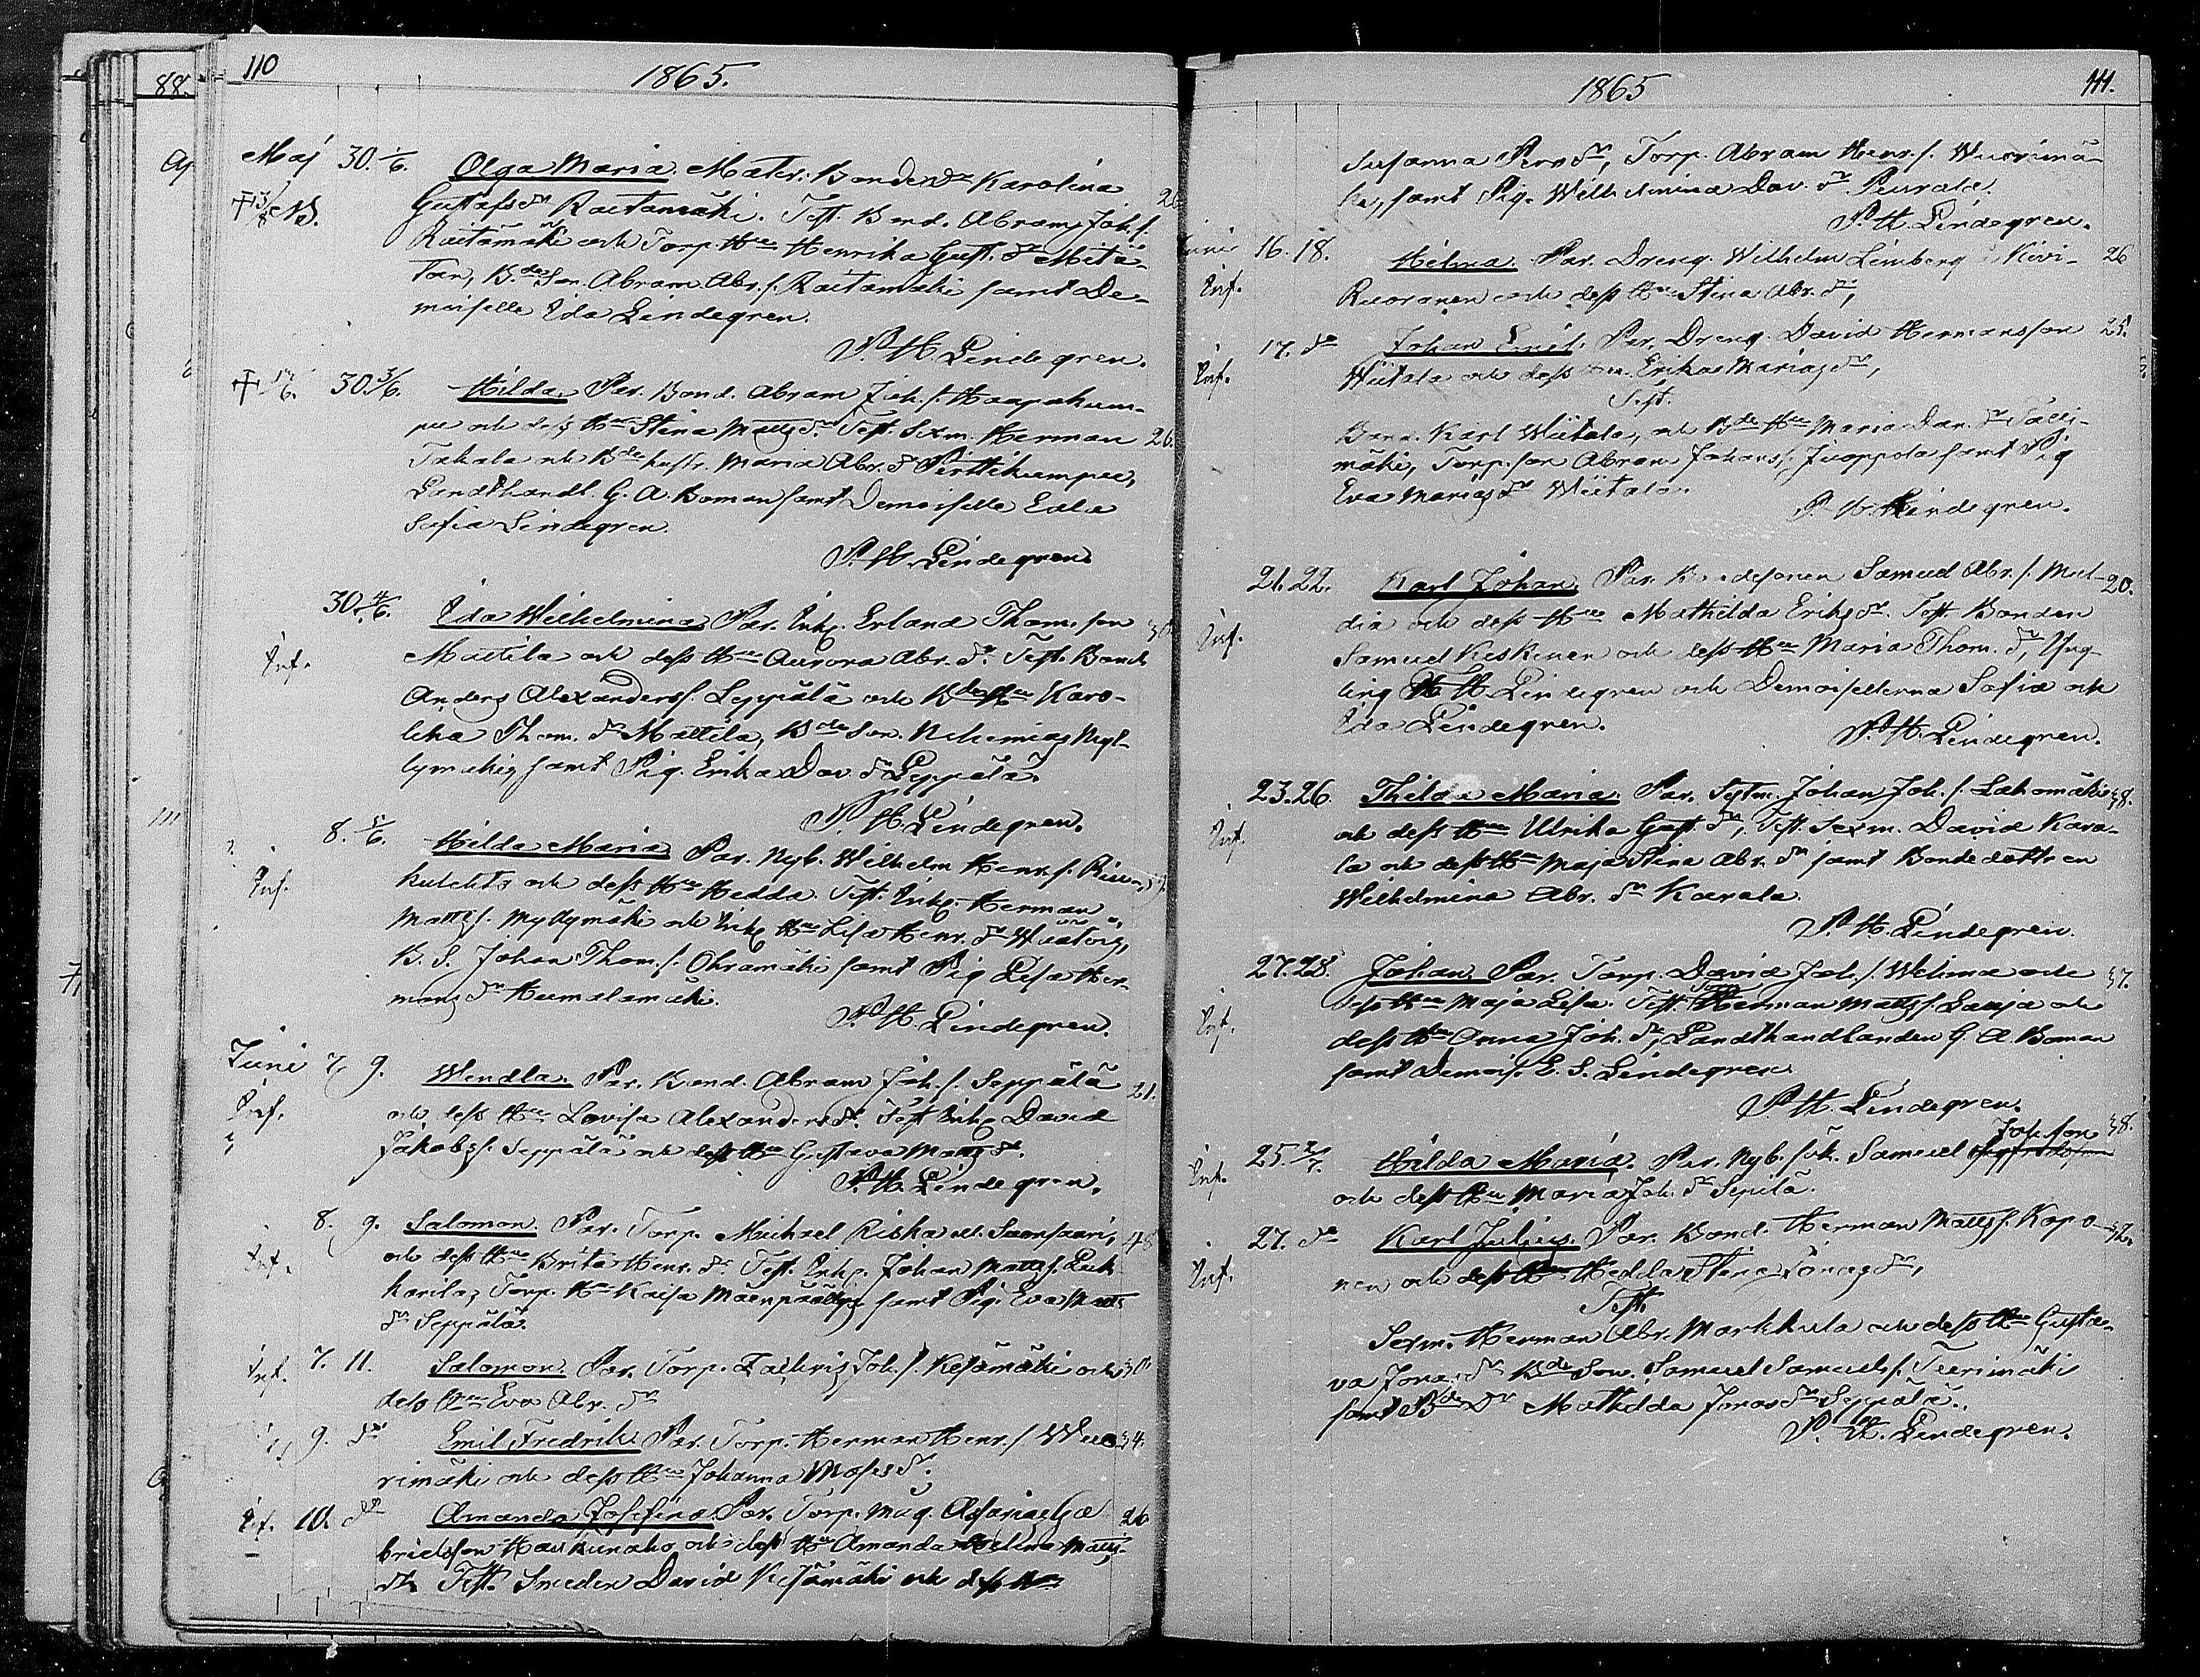 88.
110
1865.
Maj 30. 1/6. Olga Maria. Mater. Bondedr Karolina
Gustafsdr Raitamäki. Test. Bond. Abram Joh. s.
Raitamäki och Torp. Hu Henrika Gust. dr Mitä-
Abram Abr. s. Raitamäki samt De-
moiselle Ida Lindegren.
P. H. Lindegren.
30. 3/6. Hilda. Par. Bond. Abram Joh. s. Haapakum-
pu och dess Hu Stina Mattsdr. Test. Sexm. Herman 26.
Takala och Bde hustr. Maria Abr. dr Pirttikumpu,
Landthandl. G. A. Boman samt Demoiselle Eva
Sofia Lindegren.
P. H. Lindegren.
30. 4/6. Ida Wilhelmina. Par. Inh. Erland Thom. son
Inf.
Mattila och dess Hu Aurora Abr. dr. Test. Bond.
Anders Alexanders s. Leppälä och Bde Hu Karo-
lina Thom. dr Mattila, Bde Son. Nehemias Myl-
lymäki, samt Pig. Erika Dav. dr Leppälä.
P. H. Lindegren.
8. 5/6. Hilda Maria. Par. Nyb. Wilhelm Henr. s.
Inf.
och dess Hu Hedda. Test. Inh. Herman
Matts s. Myllymäki och Inh. Hu Lisa Henr. dr
B. S. Johan Thom. s. Ohramäki samt Pig Lisa Her-
mans dr Humalamäki.
P. H. Lindegren.
Juni 7. 9. Wendla. Par. Bond. Abram Joh. s. Seppälä 21.
Inf.
och dess Hu Lovisa Alexandersdr. Test. Inh. David
Jakobs s. Seppälä och dess Hu Gustava Mattsdr.
P. H. Lindegren.
8. 9. Salomon. Par. Torp. Michael Riska ell. Saarisaari,
Inf.
och dess Hu Brita Henr. dr Test. Inh. Johan Matts s.
harila, Torp. Hu Kaisa Mäenpää samt Pig. Eva Matts
dr Seppälä.
Inf. 7. 11. Salomon. Par. Torp. Zachris Joh. s. Kesämäki och
dess Hu Eva Abr. dr
9. do Emil Fredrik. Par. Torp. Herman Henr. s. Wuo- 34.
rimäki och dess Hu Johanna Moses dr.
Inf. 10. do Amanda Josefina. Par. Torp. Mag. Asarias Ga- 26
brielsson och dess Hu Amanda Matts-
dr. Test. Smeden David Kesämäki och dess Hu
1865
111.
Susanna dr, Torp. Abram Henr. s. Wuorimä-
ki, samt Pig. Wilhelmina Dav. dr Peurala.
P. H. Lindegren.
Juni 16. 18. Hilma. Par. Dreng. Wilhelm Limberg i Kivi- 26
Inf.
Ruoranen och dess Hu Stina Abr. dr,
17. do Johan Emil. Par. Dreng. David Hermansson 25.
Inf.
Wiitala och dess Hu. Erika Marias dr,
Test.
Bond. Karl Wiitala, och Bde Hu Maria Dav. dr Talli-
mäki, Torp. son Abram Johans s. Juoppola samt Pig
Eva Marias dr Wiitala.
P. H. Lindegren.
21. 22. Karl Johan. Par. Bondesonen Samuel Abr. s. 20.
Inf.
och dess Hu Mathilda Eriks dr. Test. Bonden
Samuel Keskinen och dess Hu Maria Thom. dr, Yng-
ling H. Lindegren och Demoisellerna Sofia och
Ida Lindegren.
P. H. Lindegren.
23. 26. Thilda Maria. Par. Johan Joh. s. Lahomäki 38.
Inf.
och dess Hu Ulrika Gust. dr, Test. Sexm. David Kara-
la och dess Hu Maja Stina Abr. dr samt Bondedottren
Wilhelmina Abr. dr Karala.
P. H. Lindegren.
27. 28. Johan. Par. Torp. David Joh. s. Welima och 37.
Inf.
dess Hu Maja Lisa. Test. Torp. Herman Matts s. Lauja och
dess Hu Anna Joh. dr, Landthandlanden G. A. Boman
samt Demois. E. S. Lindegren.
P. H. Lindegren.
25. 2/7. Hilda Maria. Par. Nyb. sök. Samuel Joh. son 38.
Inf.
och dess Hu Maria Joh. dr Sepilä.
27. do Karl Julius. Par. Bond. Herman Matts s. Kapo- 32.
Inf.
nen och dess Hu Hedda Stina Jonas dr,
Test.
Sexm. Herman Abr. Markkula och dess Hu Gusta-
va Jonas dr Bde Son. Samuel Samuels s. Teerimäki
samt Bde Dr Mathilda Jonas dr Seppälä.
P. H. Lindegren.